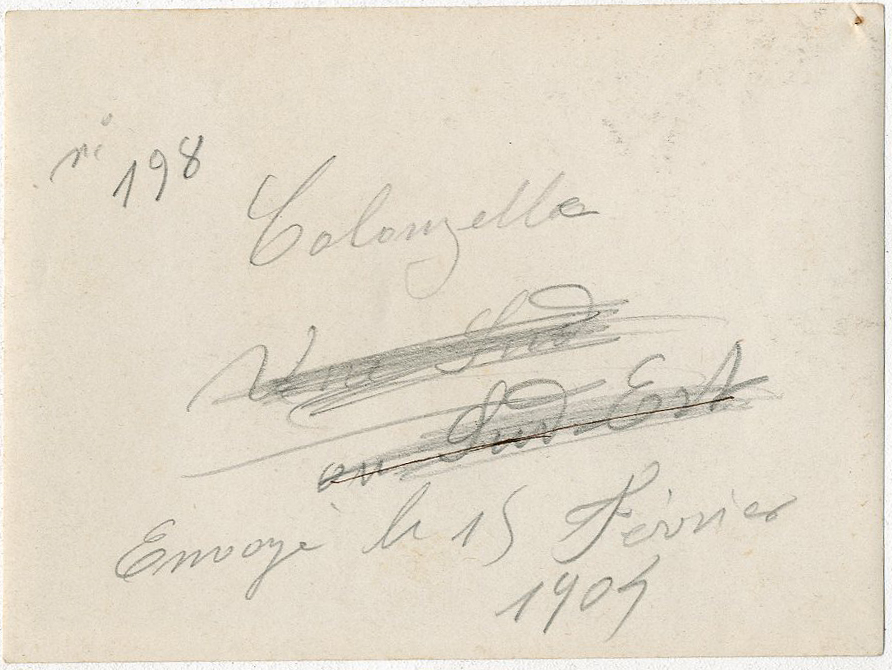 n° 198
Colonzelle
Vue Sud
ou Sud-Est
Envoyé le 15 Février
1904